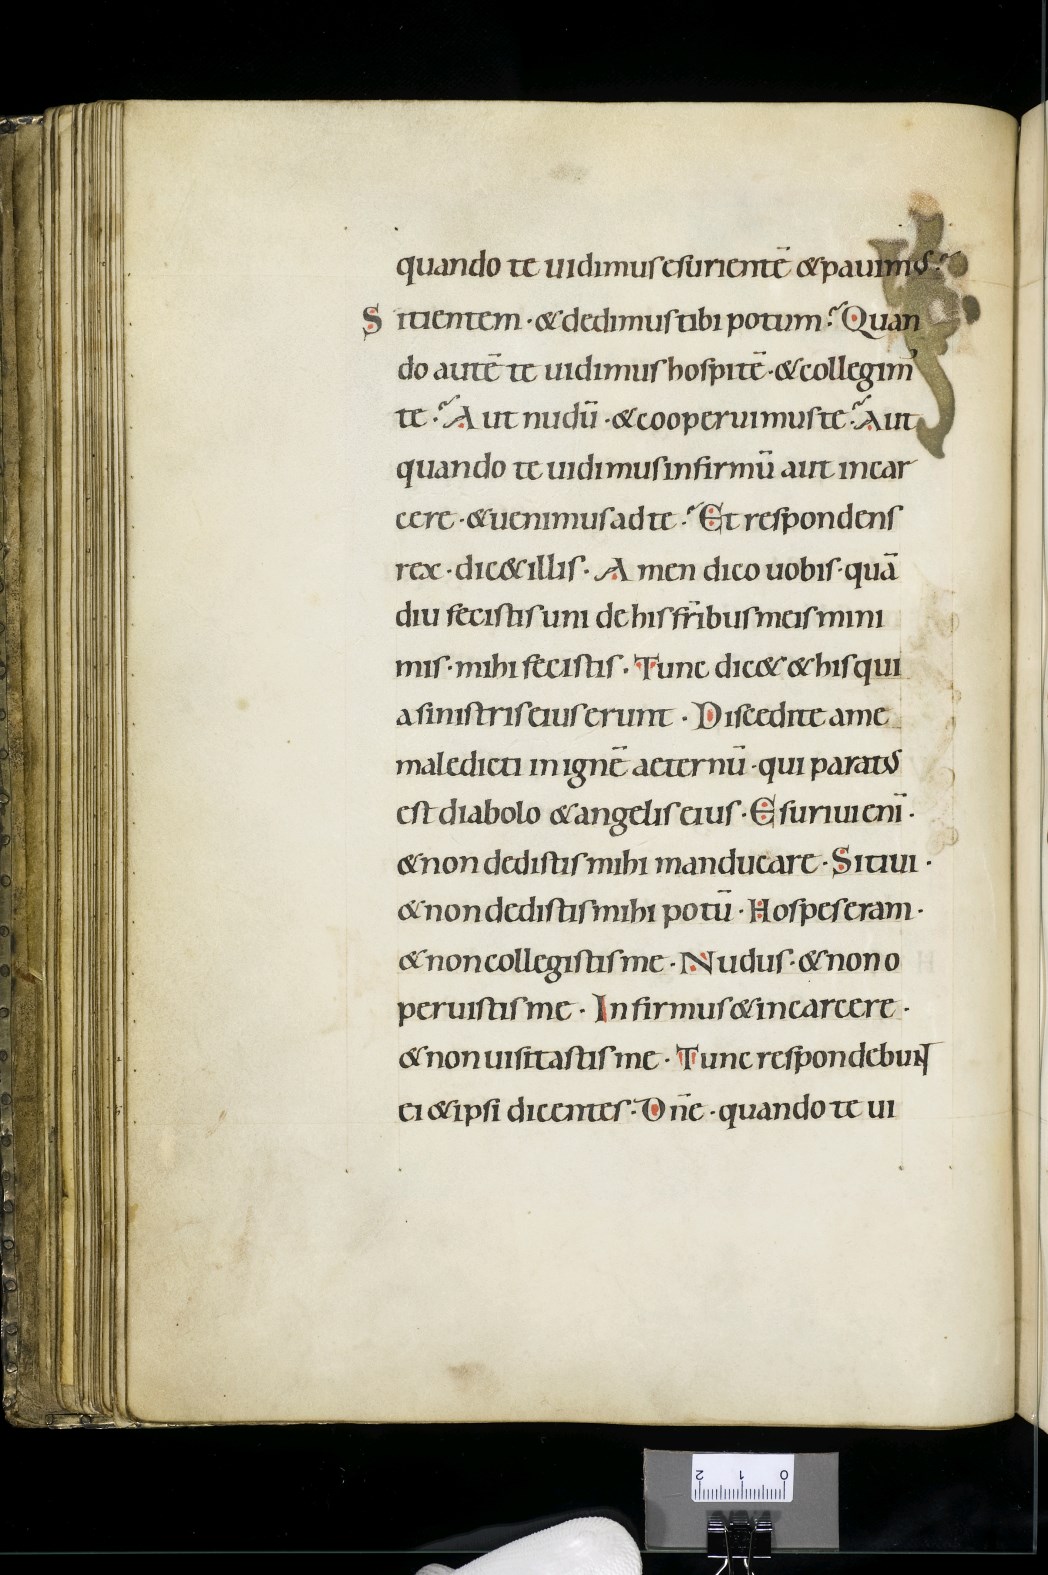 quando te uidimus esurientē & pauimus?
Sitientem · & dedimus tibi potum? Quan
do autē te uidimus hospitē · & collegim᾽
te? Aut nudū · & cooperuimus te? Aut
quando te uidimus infirmū aut in car
cere · & uenimus ad te? Et respondens
rex · dic& illis · Amen dico uobis · quā
diu fecistis uni de his fr̄ibus meis mini
mis · mihi fecistis · Tunc dic& & his qui
a sinistris eius erunt · Discedite a me
maledicti in ignē aeternū · qui paratus
est diabolo & angelis eius · Esuriui enī ·
& non dedistis mihi manducare · Sitiui ·
& non dedistis mihi potū · Hospes eram ·
& non collegistis me · Nudus · & non o
peruistis me · Infirmus & in carcere ·
& non uisitastis me · Tunc respondebunt
ei & ipsi dicentes · Dn̄e · quando te ui
2 1 0